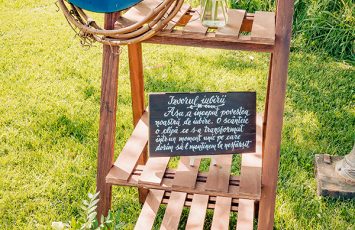 Izvorul iubirii
Așa a început povestea
noastră de iubire. O scânteie
o clipă ce s-a transformat
într-un moment unic pe care
dorim să-l menținem la nesfârșit